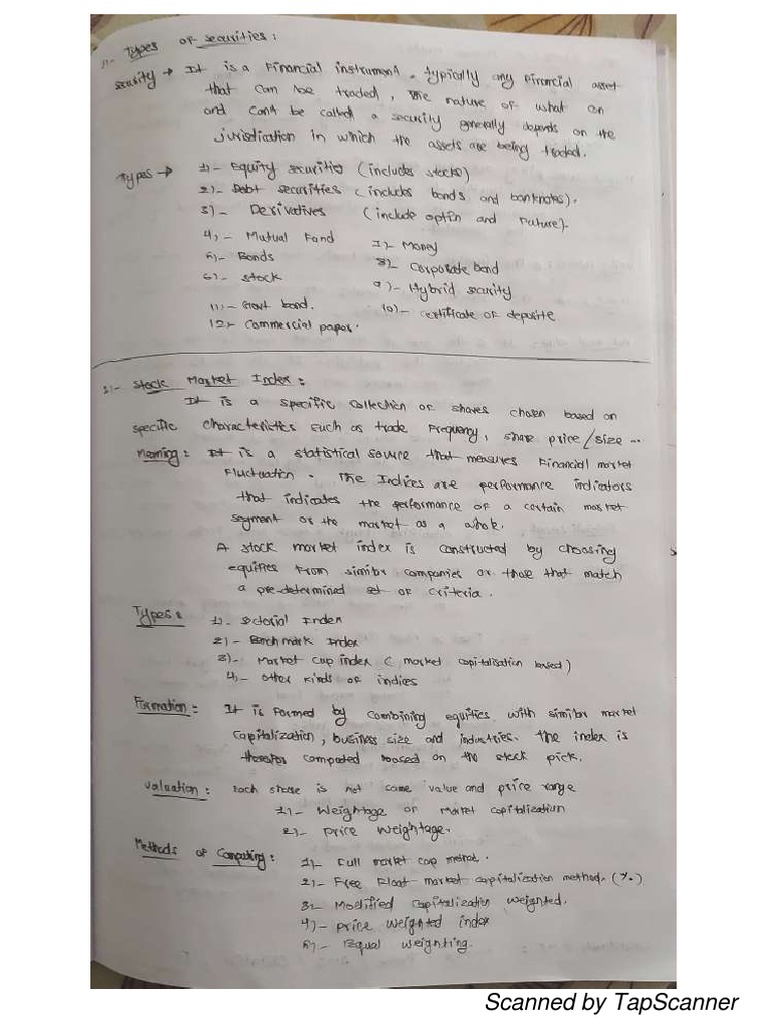 1)- Types of securities :
security → It is a Financial instrument, typically any Financial asset
that can be traded, the nature of what can
and can't be called a security generally depends on the
jurisdication in which the assets are being traded.
Types → 1)- Equity securities (includes stocks)
2)- Debt securities (includes bonds and banknotes).
3)- Derivatives (include optin and Future).
4)- Mutual Fand 7)- Money
5)- Bonds 8)- Corporate bond
6)- Stock 9)- Hybrid scurity
11)- Govt bond. 10)- certificate of deposite
12)- Commercial papar.
2)- Stock Market Index :
It is a specific collection of shares chosen based on
specific characteristics such as trade Frequency, share price/size ...
Meaning : It is a statistical source that measures Financial market
Fluctuation. The Indices are performance indicators
that indicates the performance of a certain market
segment or the market as a whole.
A stock market index is constructed by choosing
equities From similar companies or those that match
a pre-determined set of criteria.
Types : 1)- Sctorial Index
2)- Benchmark Index
3)- Market cap index (market capitalisation based)
4)- other kinds of indices
Formation : It is Formed by combining equities with similar market
capitalization, business size and industries. The index is
computed based on the stock pick.
Valuation : Each share is not same value and price range
1)- Weightage of market capitalization
2)- price weightage.
Methods of Computing : 1)- Full market cap method.
2)- Free Float market capitalization method. (%)
3)- Modified capitalization weighted.
4)- price weighted index
5)- Equal weighting.
Scanned by TapScanner